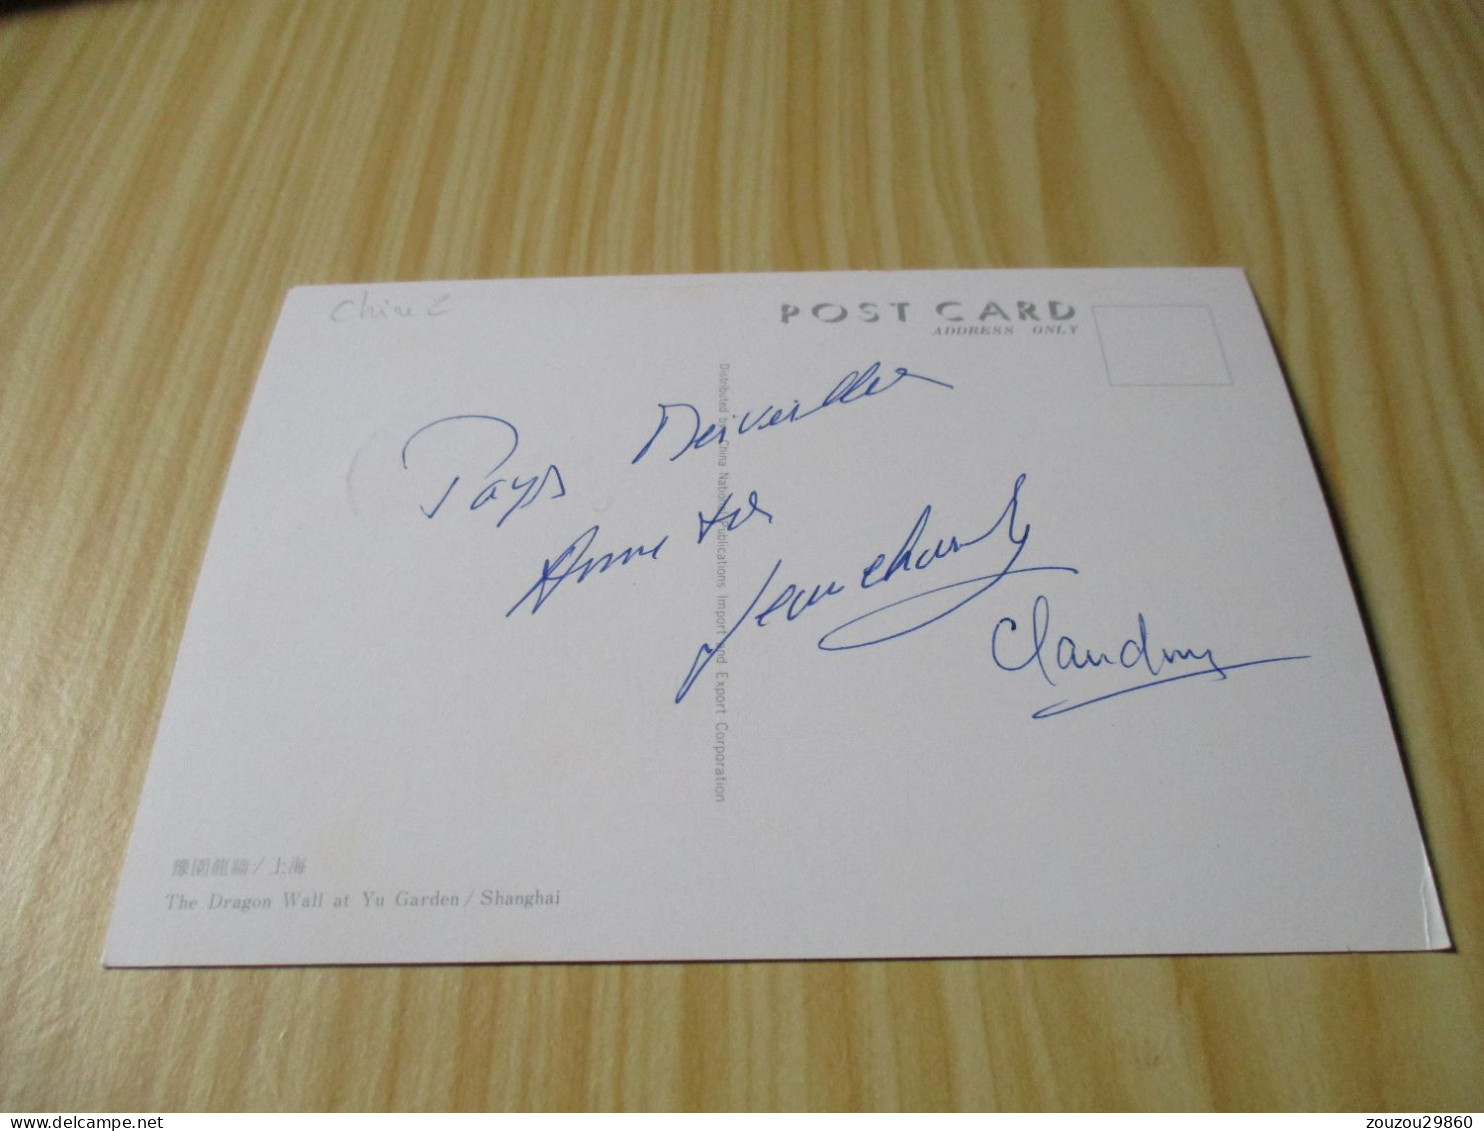 Chine
POST CARD
ADDRESS ONLY
Pays Merveilleux
Jean charles
Claudine
Distributed by China National Publications Import and Export Corporation
豫園龍牆/上海
The Dragon Wall at Yu Garden/Shanghai
www.delcampe.net
zouzou29860